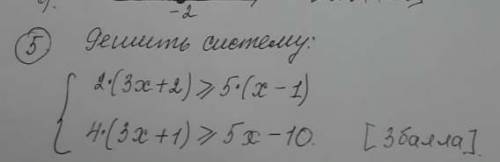 -2
5 Решить систему:
2·(3x+2) ⩾ 5·(x-1)
4·(3x+1) ⩾ 5x-10. [3балла].